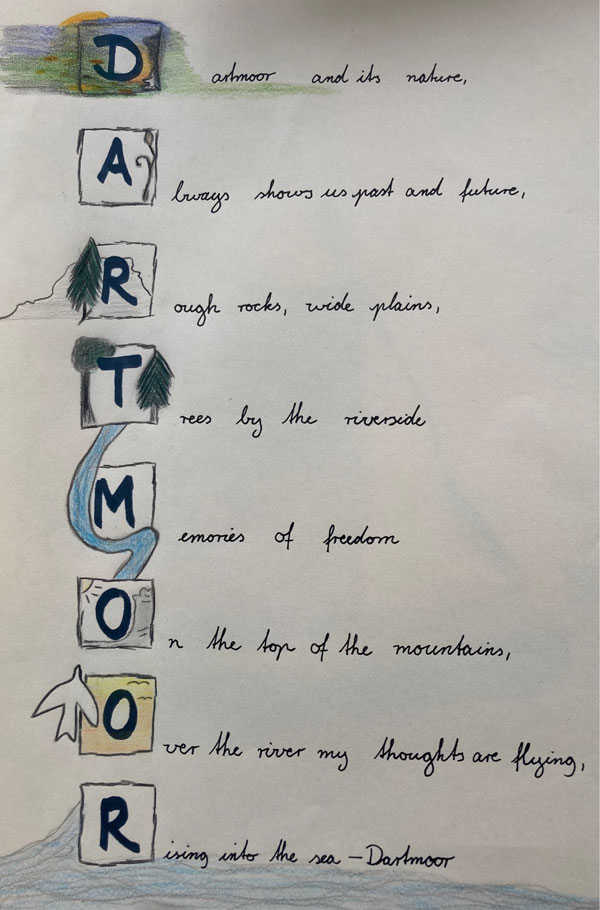 Dartmoor and its nature,
Always shows us past and future,
Rough rocks, wide plains,
Trees by the riverside
Memories of freedom
On the top of the mountains,
Over the river my thoughts are flying,
Rising into the sea – Dartmoor